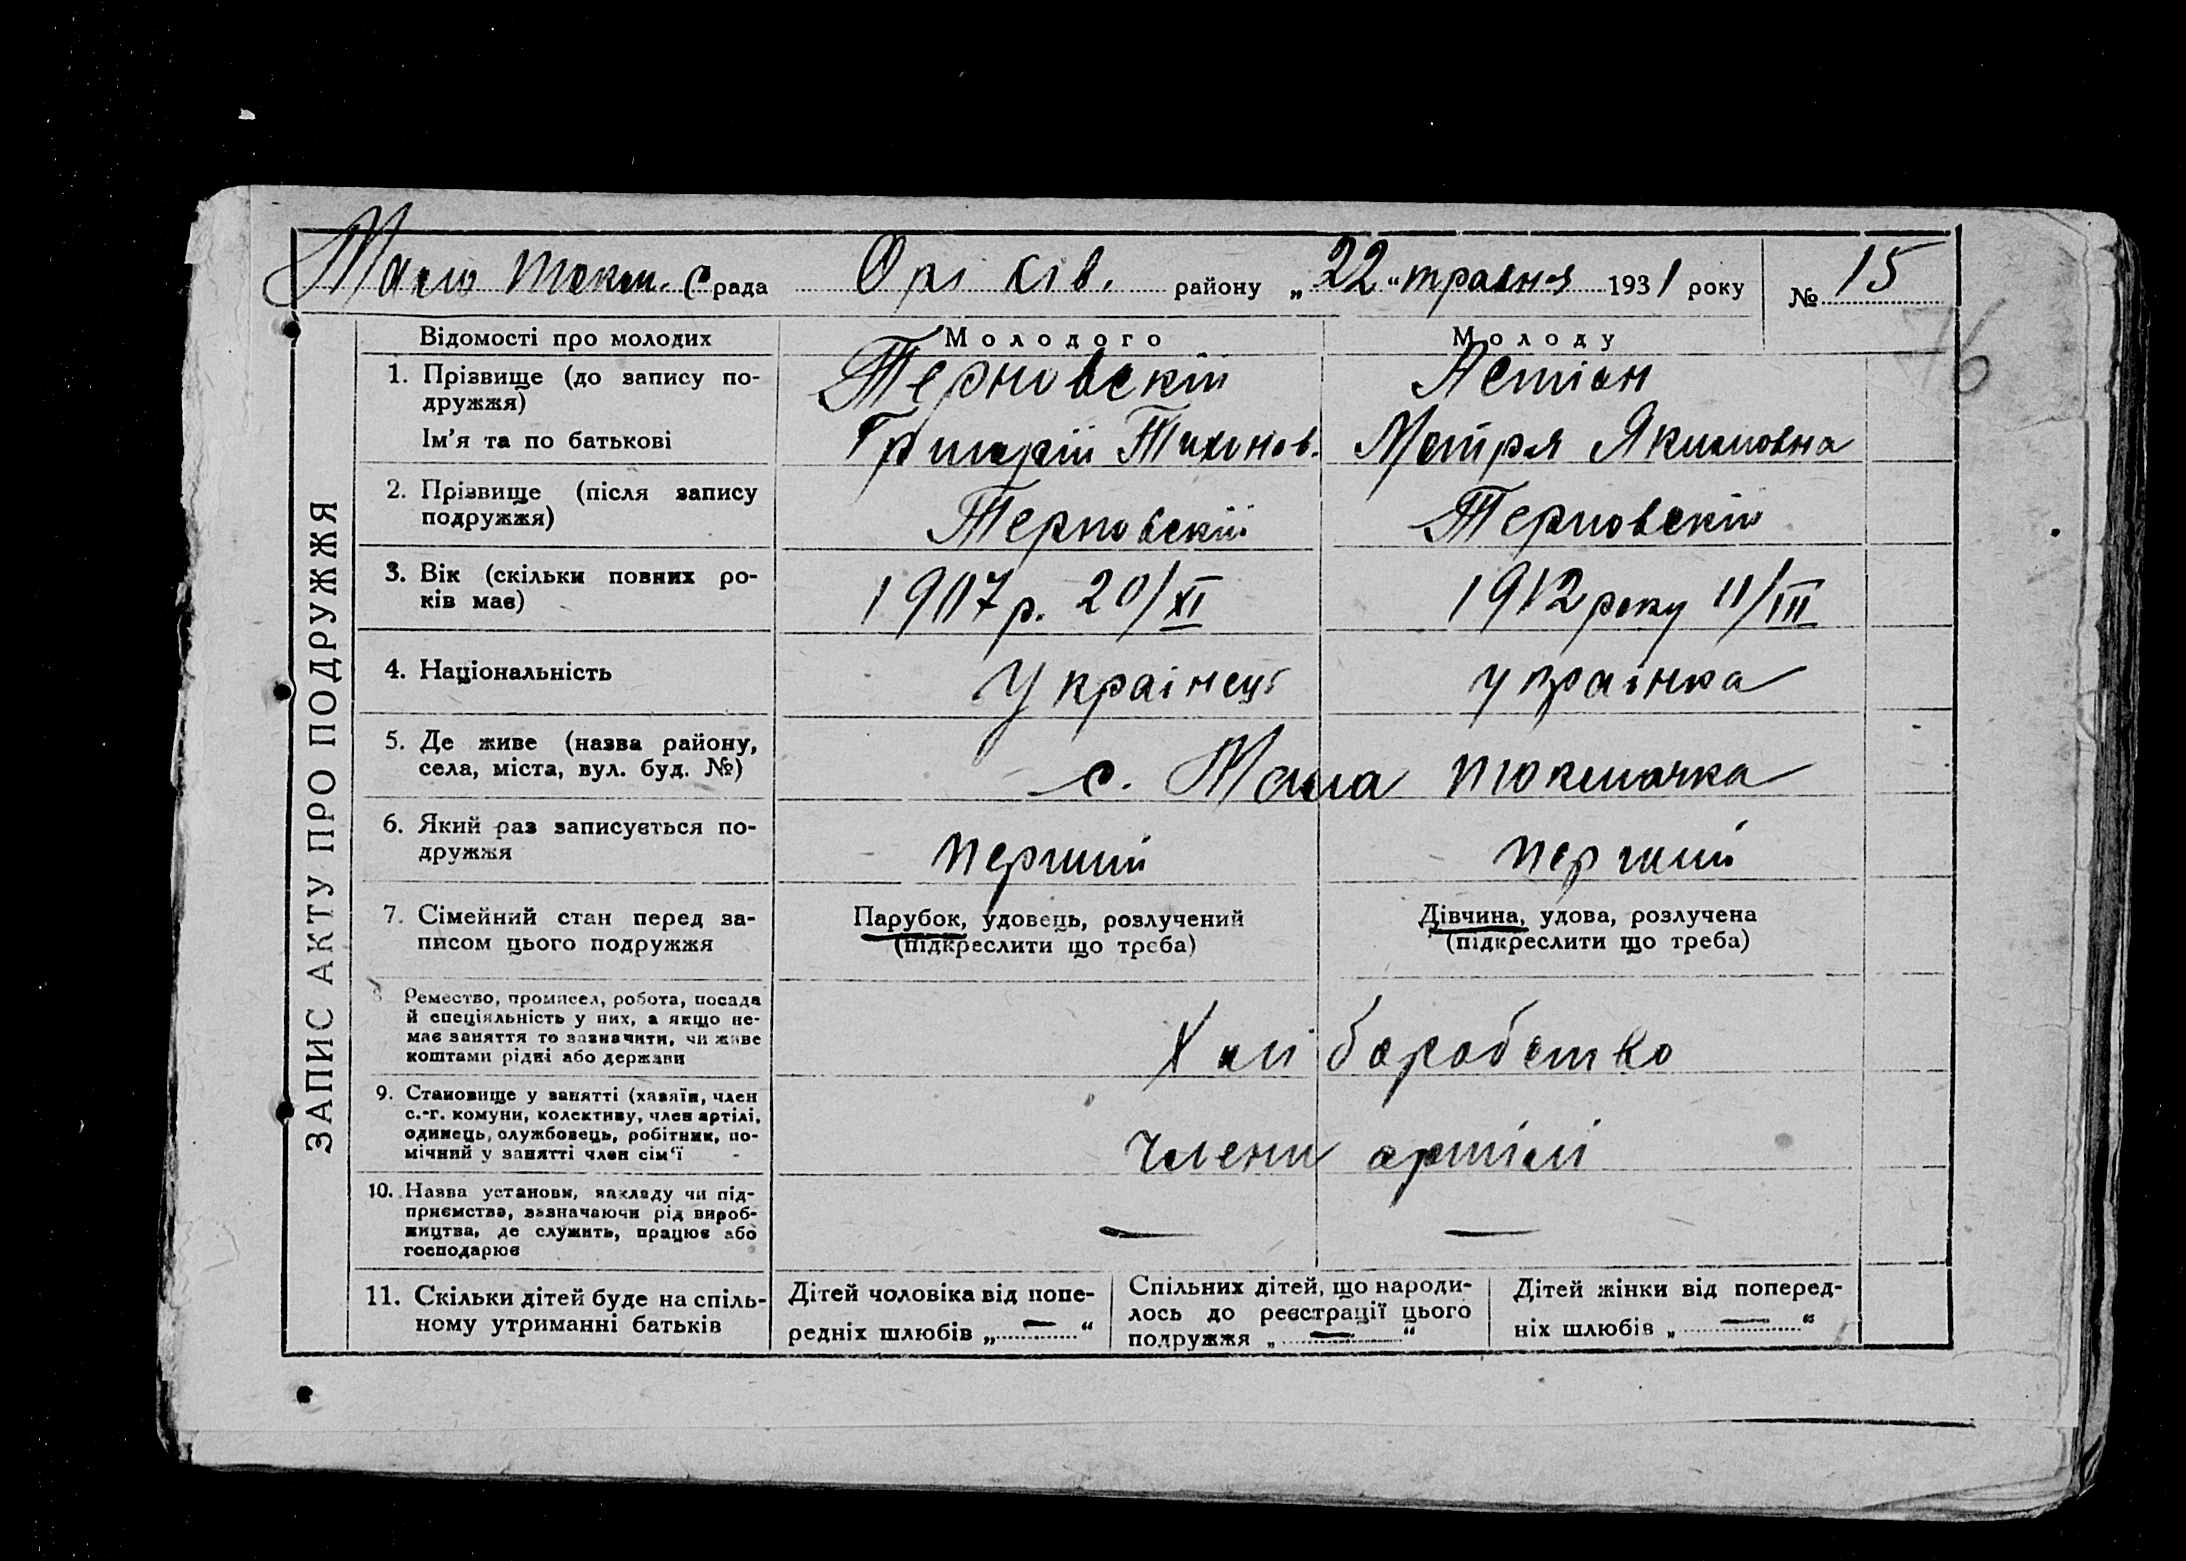 Мало Токм. Срада Оріхів. району „22“ травня 1931 року № 15
76
ЗАПИС АКТУ ПРО ПОДРУЖЖЯ
Відомості про молодих
Молодого
Молоду
1. Прізвище (до запису по-
дружжя)
Терновскій
Ім'я та по батькові
Григорій Тихонов.
Мотря Якимовна
2. Прізвище (після запису
подружжя)
Терновскій
Терновскій
3. Вік (скільки повних ро-
ків має)
1907 р. 20/XI
1912 року 11/III
4. Національність
Українець
українка
5. Де живе (назва району,
села, міста, вул. буд. №)
с. Мала Токмачка
6. Який раз записується по-
дружжя
перший
перший
7. Сімейний стан перед за-
писом цього подружжя
Парубок, удовець, розлучений
(підкреслити що треба)
Дівчина, удова, розлучена
(підкреслити що треба)
8 Ремество, промисел, робота, посада
й спеціяльність у них, а якщо не-
має заняття то зазначити, чи живе
коштами рідні або держави
Хліборобство
9. Становище у занятті (хазяїн, член
с.-г. комуни, колективу, член артілі,
одинець, службовець, робітник, по-
мічний у занятті член сім'ї
члени артілі
10. Назва установи, закладу чи під-
приємства, зазначаючи рід вироб-
ництва, де служить, працює або
господарює
—
—
11. Скільки дітей буде на спіль-
ному утриманні батьків
Дітей чоловіка від попе-
редніх шлюбів „—“
Спільних дітей, що народи-
лось до реєстрації цього
подружжя „—“
Дітей жінки від поперед-
ніх шлюбів „—“